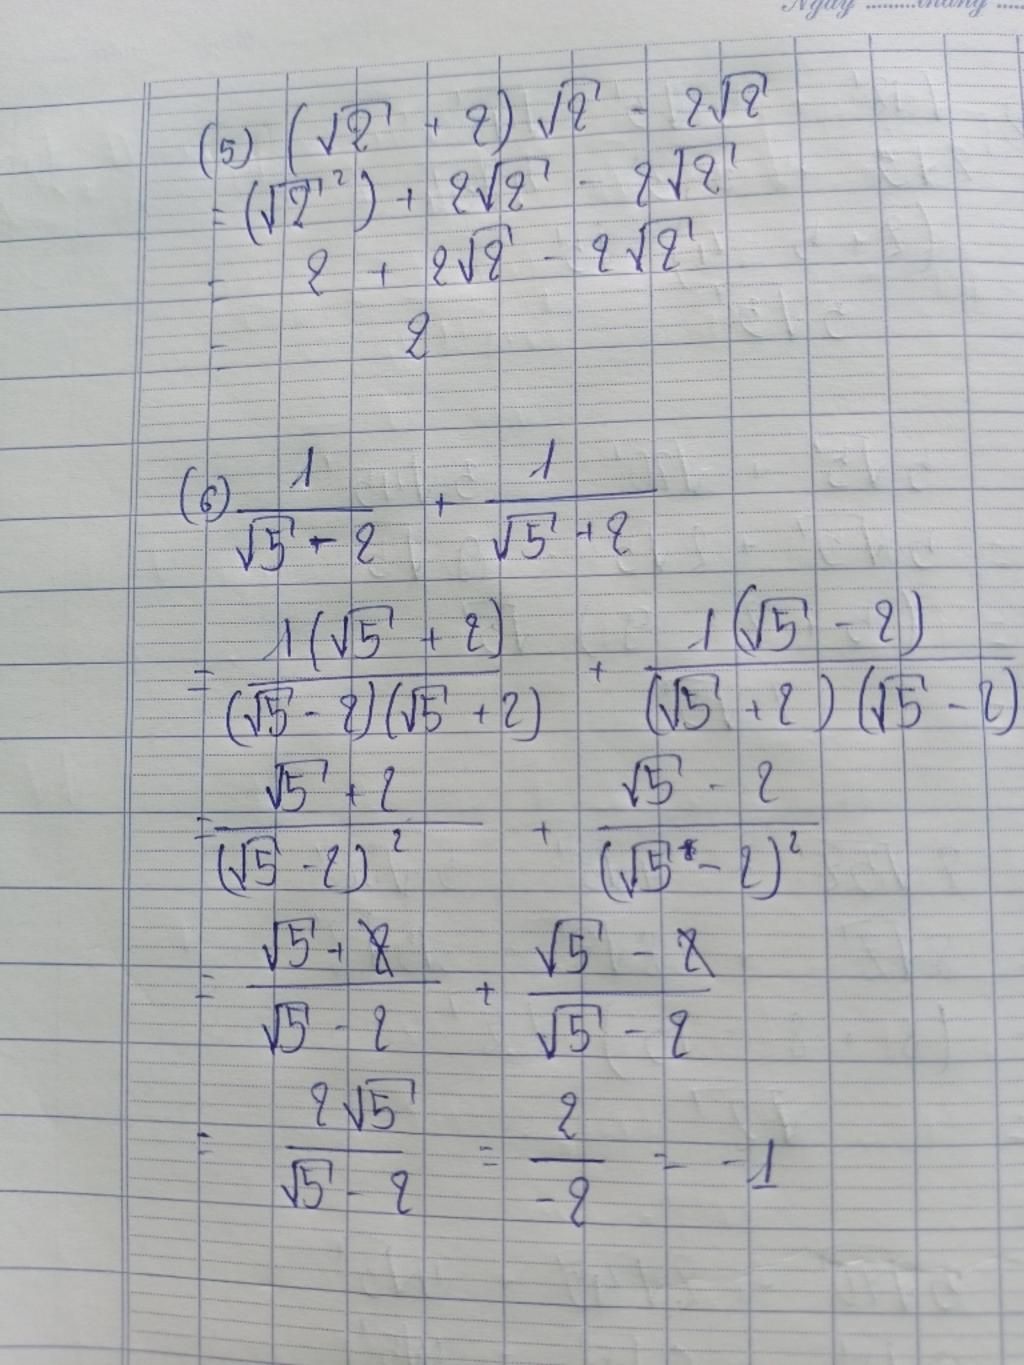 Ngày .........tháng .....
(5) (√2 + 2) √2 - 2√2
= (√2²) + 2√2 - 2√2
= 2 + 2√2 - 2√2
= 2
(6) 1/(√5 - 2) + 1/(√5 + 2)
= 1(√5 + 2)/(√5 - 2)(√5 + 2) + 1(√5 - 2)/(√5 + 2)(√5 - 2)
= (√5 + 2)/(√5 - 2)² + (√5 - 2)/(√5 - 2)²
= (√5 + 2)/(√5 - 2) + (√5 - 2)/(√5 - 2)
= 2√5/(√5 - 2) = 2/-2 = -1